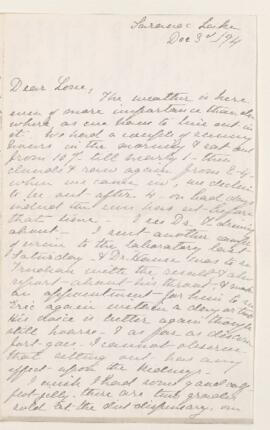 Saranac Lake
Dec 3rd/94
Dear Lorne,
The weather is here
even of more importance than else
where, as one has to live out in
it. We had a couple of sunny
hours in the morning & sat out
from 10 till nearly 1 - then
clouds & snow again from 2-4-
when we came in, we decline
to be out after 4 on bad days
indeed the sun has set before
that time. I see Dr.
about - I sent another sample
of urine to the laboratory on
Saturday - & Dr was to see
Trudeau with the result & also
report about his throat & make
an appointment for him to see
Eric again within a day or two
His voice is better again though
still hoarse - & as far as discom
fort goes - I cannot observe
that sitting out has any
effect upon the kidneys -
I wish I had some good
jelly, there are two grades
sold at the diet dispensary, one